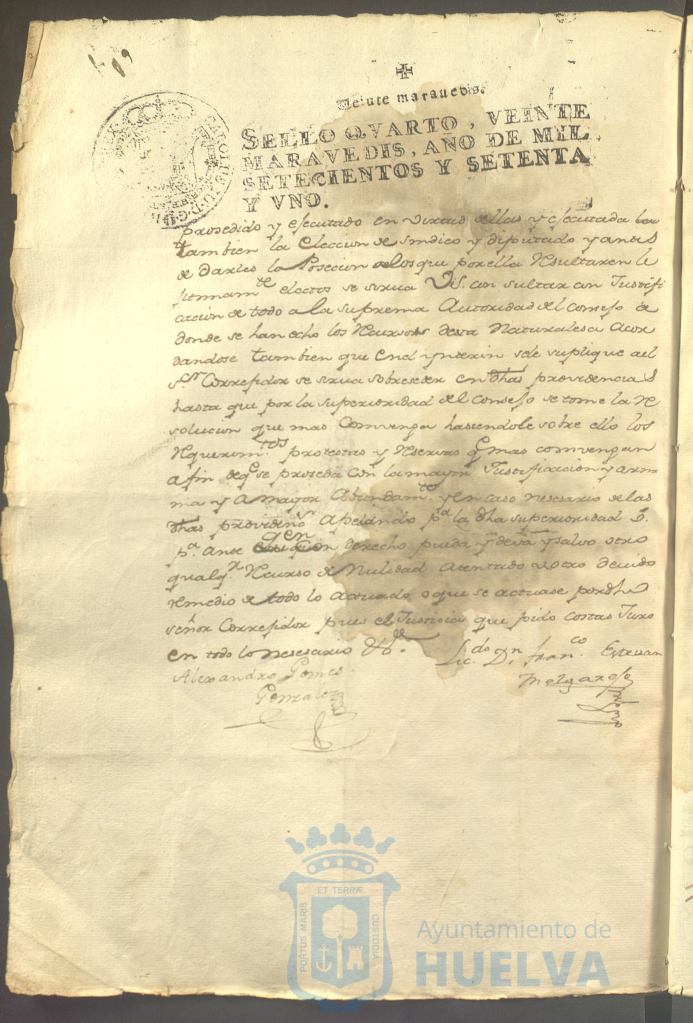 Veinte maravedis.
SELLO QVARTO, VEINTE
MARAVEDIS, AÑO DE MIL
SETECIENTOS Y SETENTA
Y VNO.
prosedido y efecutado en virtud de ellas y efecutada
tambien la eleccion de sindico y diputado y antes
de darles la Posecion a los que por ella Resultaren le
electos se sirua VS. consultar con Justifi
cacion de todo a la suprema Autoridad del consejo a
donde se han echo los Recursos desta Naturalesa Acor
dandose tambien que en el ynterin se le suplique al
Sr. Correfidor se sirua sobreseder en dhas providencias
hasta que por la superioridad del Consejo se tome la Re
solucion que mas Comvenga hasiendole sobre ello los
Requerim.tos protestas y Reservas q.e mas comvengan
a fin de q.e se proseda con la mayor Justificacion y
y A mayor Abundam.to y en caso nesesario de las
dhas providen.s Apelando p.a la dha superioridad
p.a ante quien derecho pueda y deva y salvo otro
qualq.r Recurso de Nulidad Atentado u otro devido
Remedio de todo lo Actuado o que se actuase por dho
señor Correfidor pues es Justicia que pido costas Juro
en todo lo nesesario &.
Lic.do Dn. fran.co Estevan
Alexandro Gomes
Gonzales
Melgarejo
PORTUS MARIS
ET TERRÆ
CUSTODIA
Ayuntamiento de
HUELVA